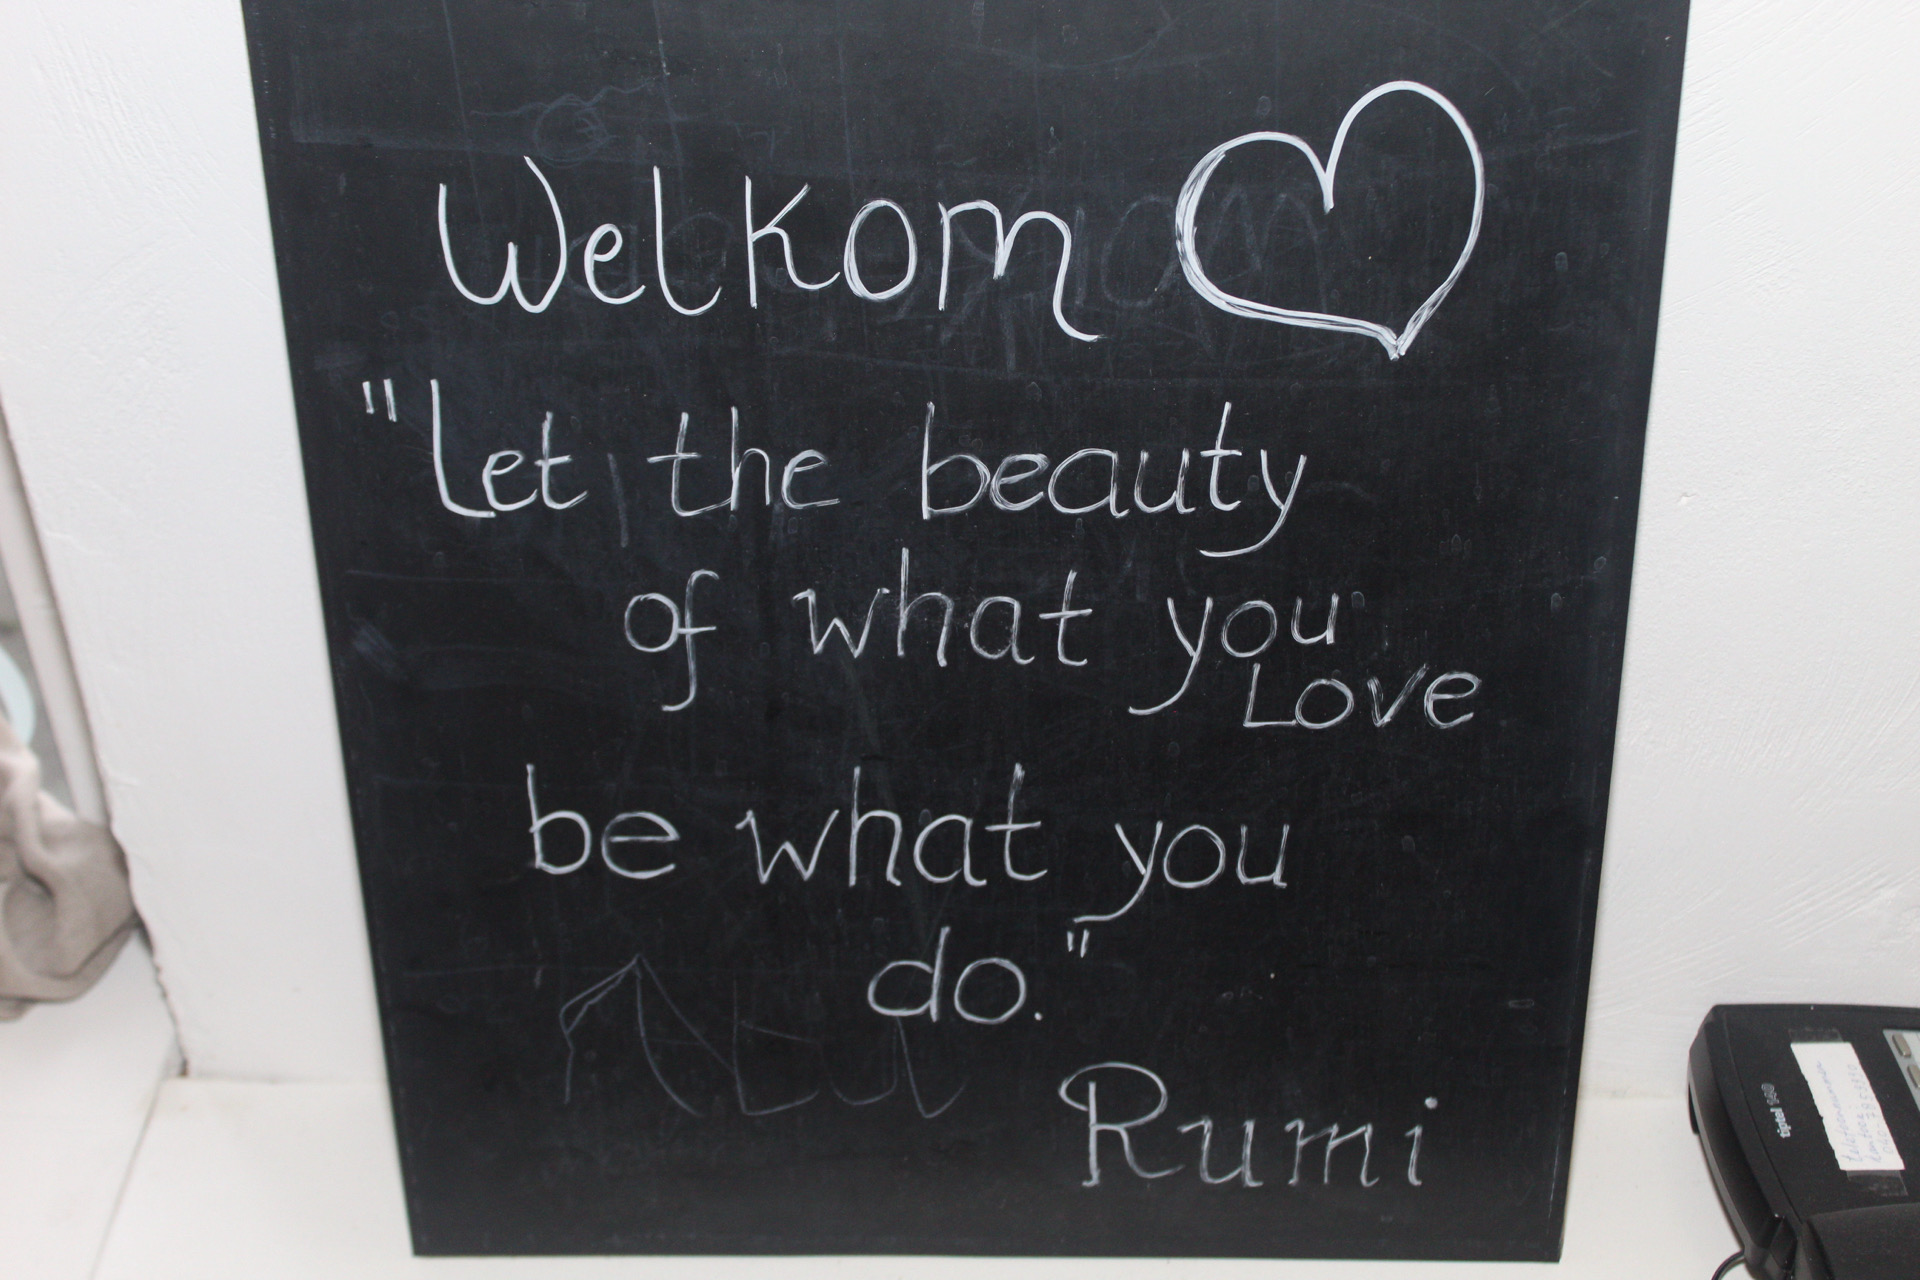 Welkom
"Let the beauty
of what you
Love
be what you
do."
Rumi
tiptel 140